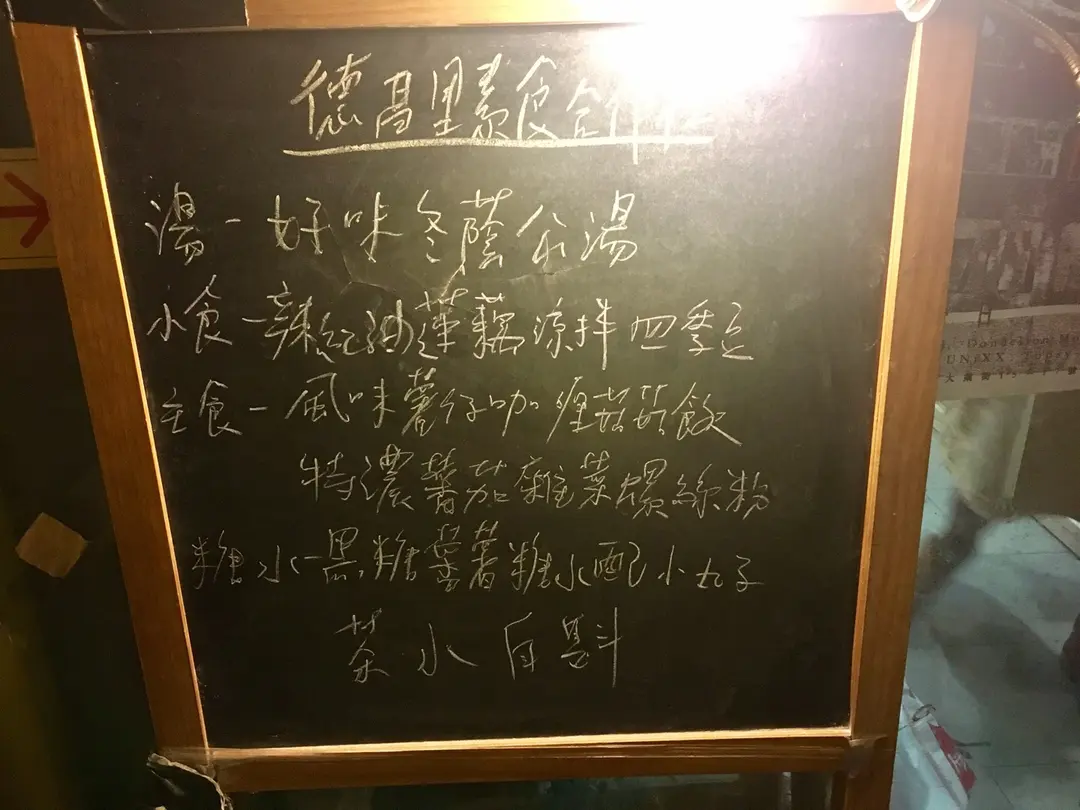 德昌里素食合作社
湯－好味冬蔭公湯
小食－辣紅油蓮藕涼拌四季豆
主食－風味薯仔咖喱菇菇飯
特濃蕃茄雜菜螺絲粉
糖水－黑糖蕃薯糖水配小丸子
茶水自斟
Dandelion